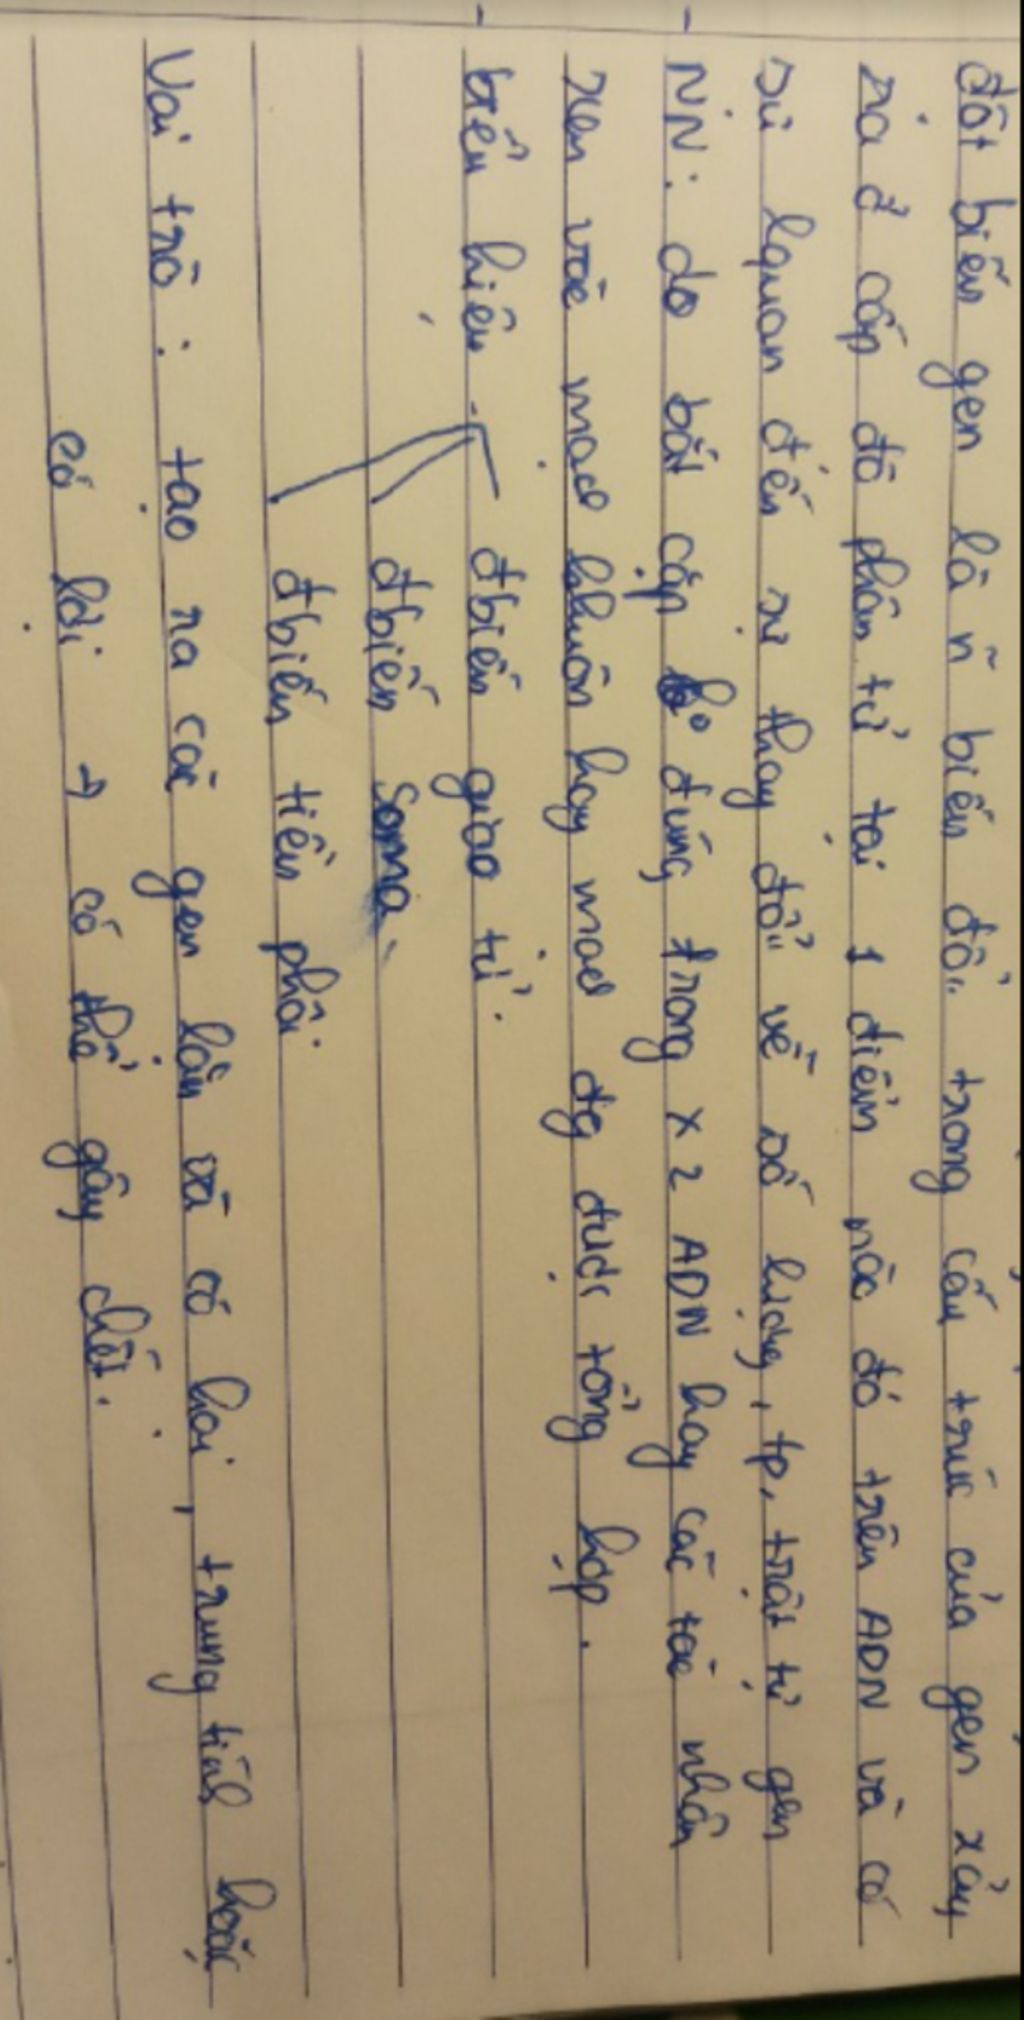 đột biến gen là ~~n~~ biến đổi trong cấu trúc của gen xảy
ra ở cấp độ phân tử tại 1 điểm nào đó trên ADN và có
sự lquan đến sự thay đổi về số lượng, tp, trật tự gen
- NN: do bắt cặp ko đúng trong x2 ADN hay các tác nhân
xen vào mạch khuôn hay mạch đg được tổng hợp.
- biểu hiện đbiến giao tử.
đbiến soma.
đbiến tiền phôi.
Vai trò: tạo ra các gen lặn và có hại, trung tính hoặc
có lợi → có thể gây chết.